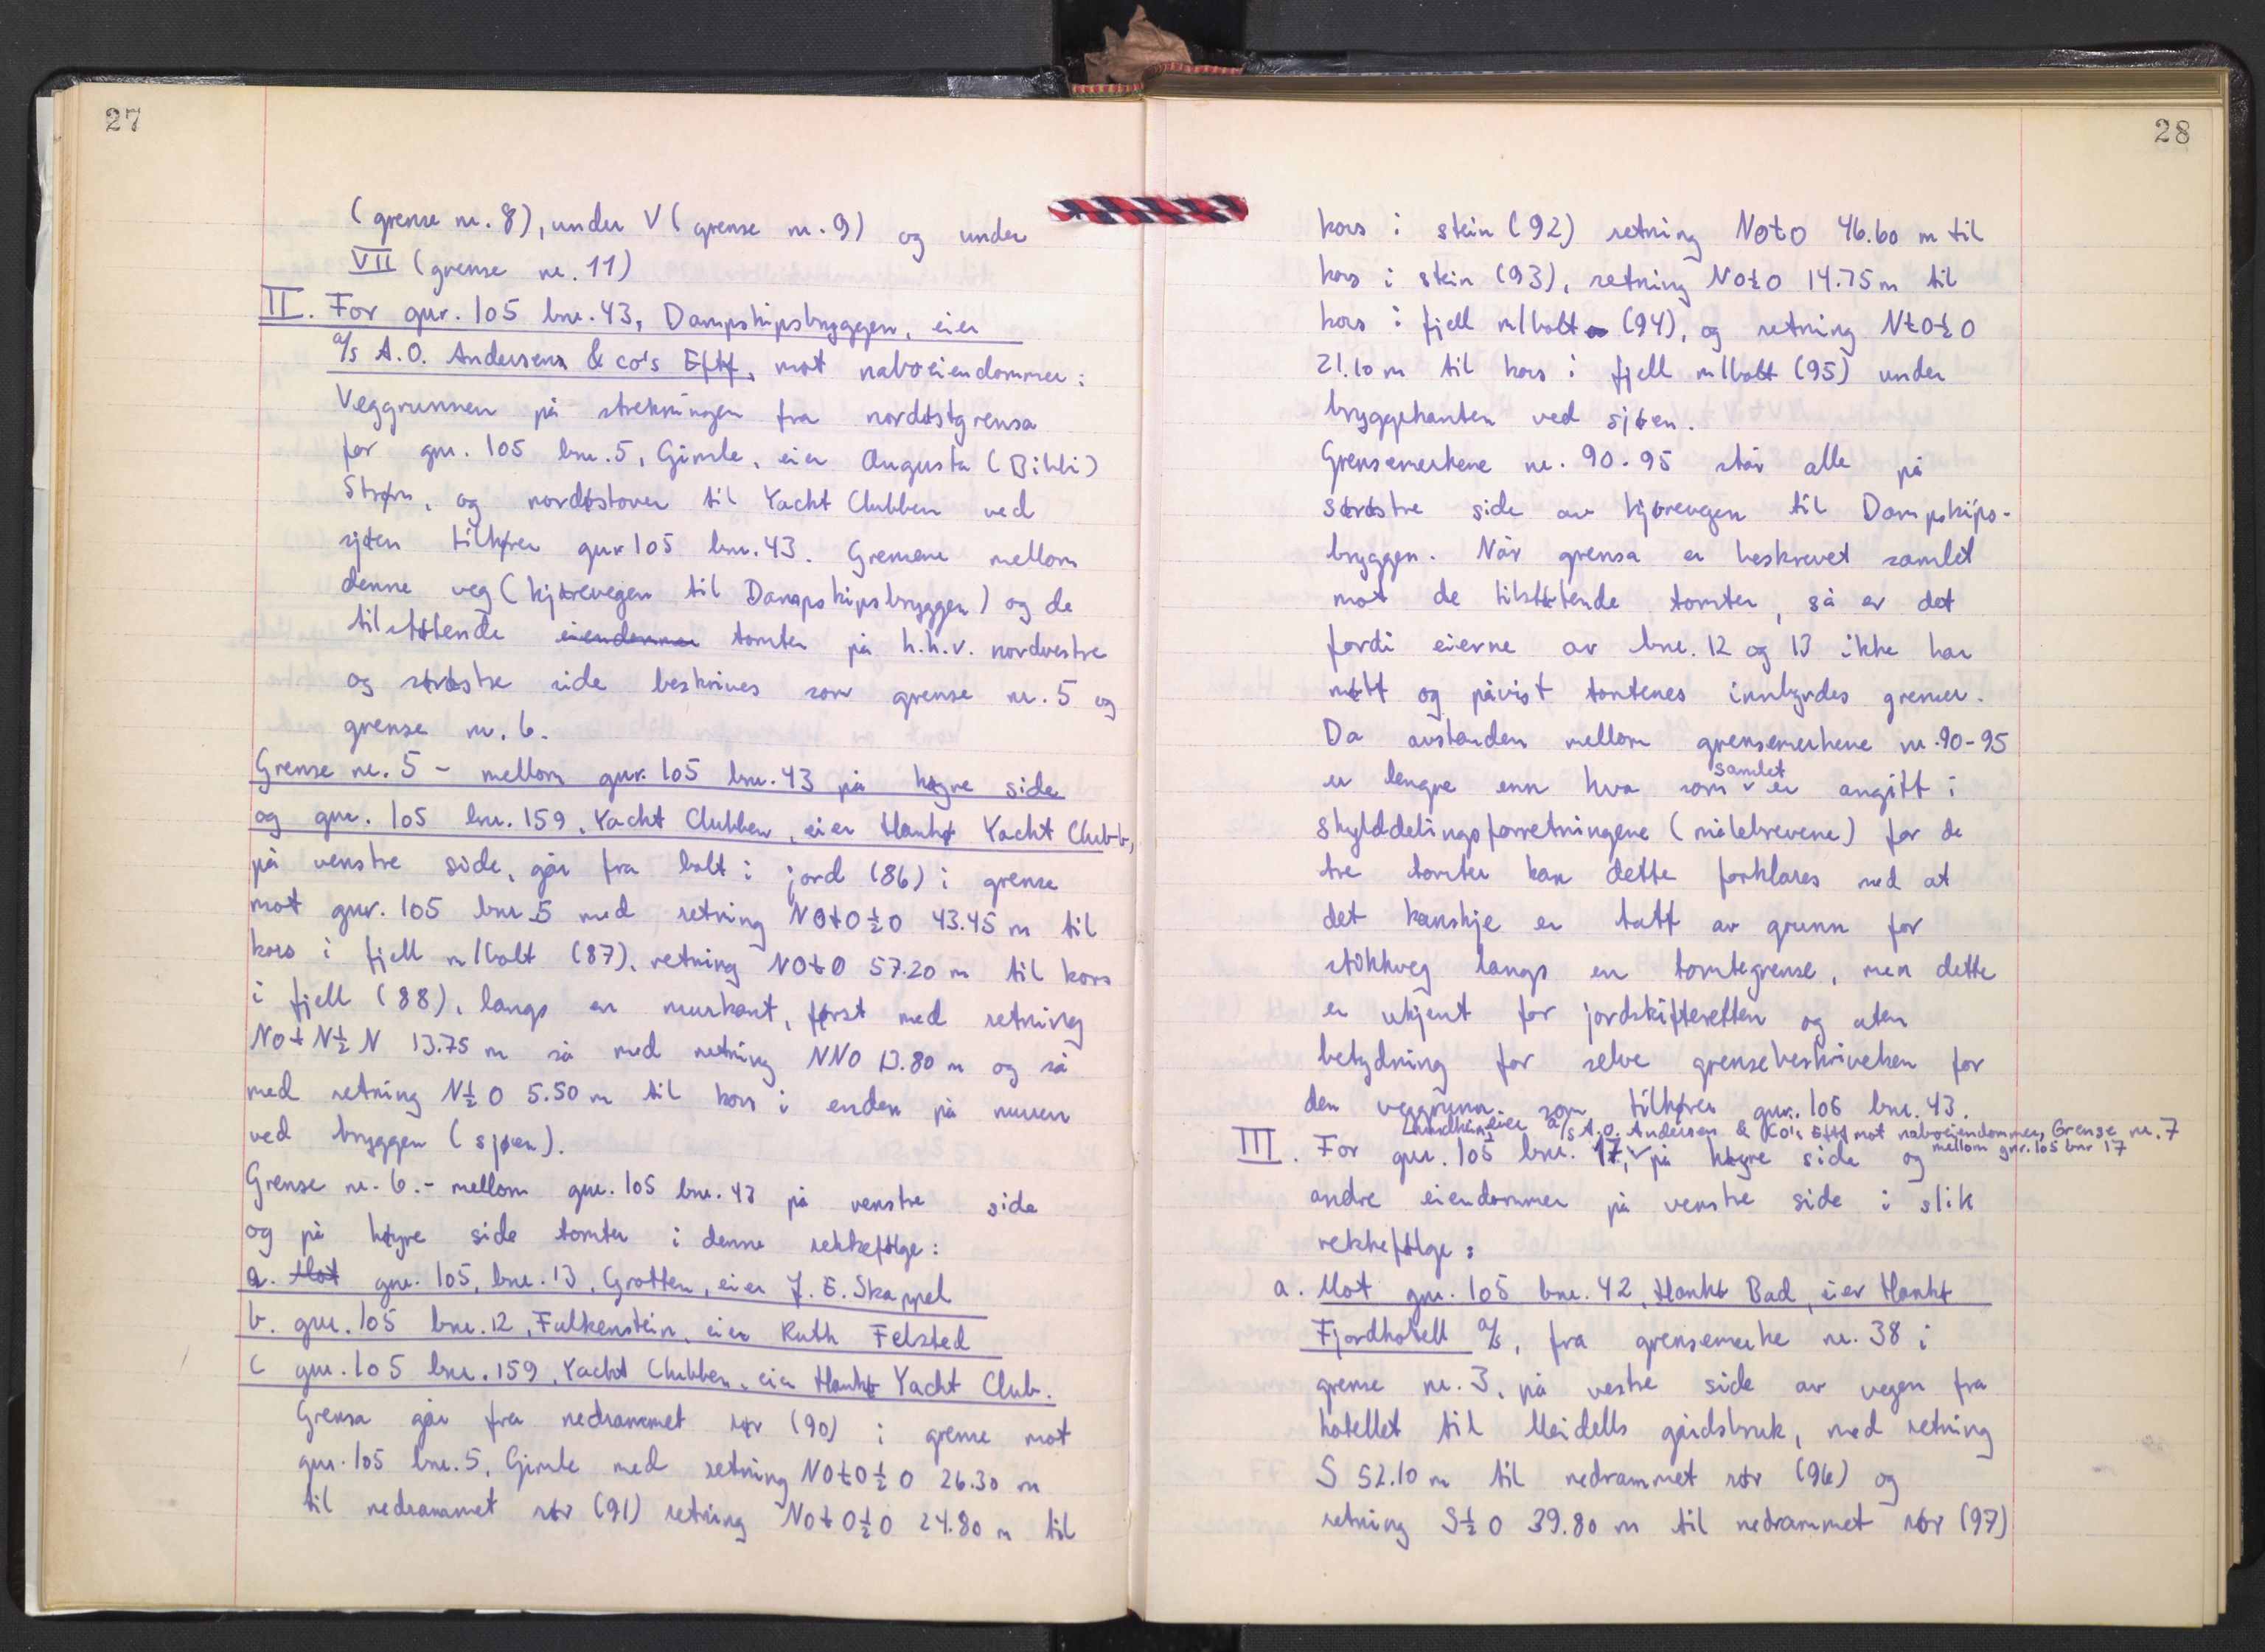 27
(grense nr. 8), under V (grense nr. 9) og under
VII (grense nr. 11)
II. For gnr. 105 bnr. 43, Dampskipsbryggen, eier
a/s A.O. Andersens & co's Eftf, mot naboeiendommer:
Veggrunnen på strekningen fra nordøstgrensa
for gnr. 105 bnr. 5, Gimle, eier Augusta (Bibbi)
Strøm, og nordøstover til Yacht Clubben ved
sjøen tilhører gnr 105 bnr. 43. Grensene mellom
denne veg (kjørevegen til Dampskipsbryggen) og de
tilstøtende eiendommer tomter på h.h.v. nordvestre
og sørøstre side beskrives som grense nr. 5 og
grense nr. 6.
Grense nr. 5 - mellom gnr. 105 bnr. 43 på høgre side
og gnr. 105 bnr. 159, Yacht Clubben, eier Hankø Yacht Clubb,
på venstre side, går fra bolt i jord (86) i grense
mot gnr. 105 bnr. 5 med retning NOtO½O 43.45 m til
kors i fjell m/bolt (87), retning NOtO 57.20 m til kors
i fjell (88), langs en murkant, først med retning
NOtN½N 13.75 m så med retning NNO 13.80 m og så
med retning N½O 5.50 m til kors i enden på muren
ved bryggen (sjøen).
Grense nr. 6. - mellom gnr. 105 bnr. 43 på venstre side
og på høgre side tomter i denne rekkefølge:
a. Mot gnr. 105, bnr. 13, Grotten, eier J. E. Skappel
b. gnr. 105 bnr. 12, Falkenstein, eier Ruth Felsted
c gnr. 105 bnr. 159, Yacht Clubben, eier Hankø Yacht Club.
Grensa går fra nedrammet rør (90) i grense mot
gnr. 105 bnr. 5, Gimle med retning NOtO½O 26.30 m
til nedrammet rør (91) retning NOtO½O 24.80 m til
28
kors i stein (92) retning NOtO 46.60 m til
kors i stein (93), retning NOtO 14.75 m til
kors i fjell m/bolt (94), og retning NtO½O
21.10 m til kors i fjell m/bolt (95) under
bryggekanten ved sjøen.
Grensemerkene nr. 90-95 står alle på
sørøstre side av kjørevegen til Dampskips-
bryggen. Når grensa er beskrevet samlet
mot de tilstøtende tomter, så er det
fordi eierne av bnr. 12 og 13 ikke har
møtt og påvist tomtenes innbyrdes grenser.
Da avstanden mellom grensemerkene nr. 90-95
samlet
er lengre enn hva som er angitt i
skylddelingsforretningene (målebrevene) for de
tre tomter kan dette forklares med at
det kanskje er tatt av grunn for
stikkveg langs en tomtegrense, men dette
er ukjent for jordskifteretten og uten
betydning for selve grensebeskrivelsen for
den veggrunn som tilhører gnr. 105 bnr. 43.
eier a/s A.O. Andersen & Co's Eftf mot naboeiendommer, Grense nr. 7
mellom gnr. 105 bnr 17
III. For gnr. 105 bnr. 17, på høgre side og
andre eiendommer på venstre side i slik
rekkefølge:
a. Mot gnr. 105 bnr. 42, Hankø Bad, eier Hankø
Fjordhotell a/s, fra grensemerke nr. 38 i
grense nr. 3, på vestre side av vegen fra
hotellet til Meidells gårdsbruk, med retning
S 52.10 m til nedrammet rør (96) og
retning S½O 39.80 m til nedrammet rør (97)